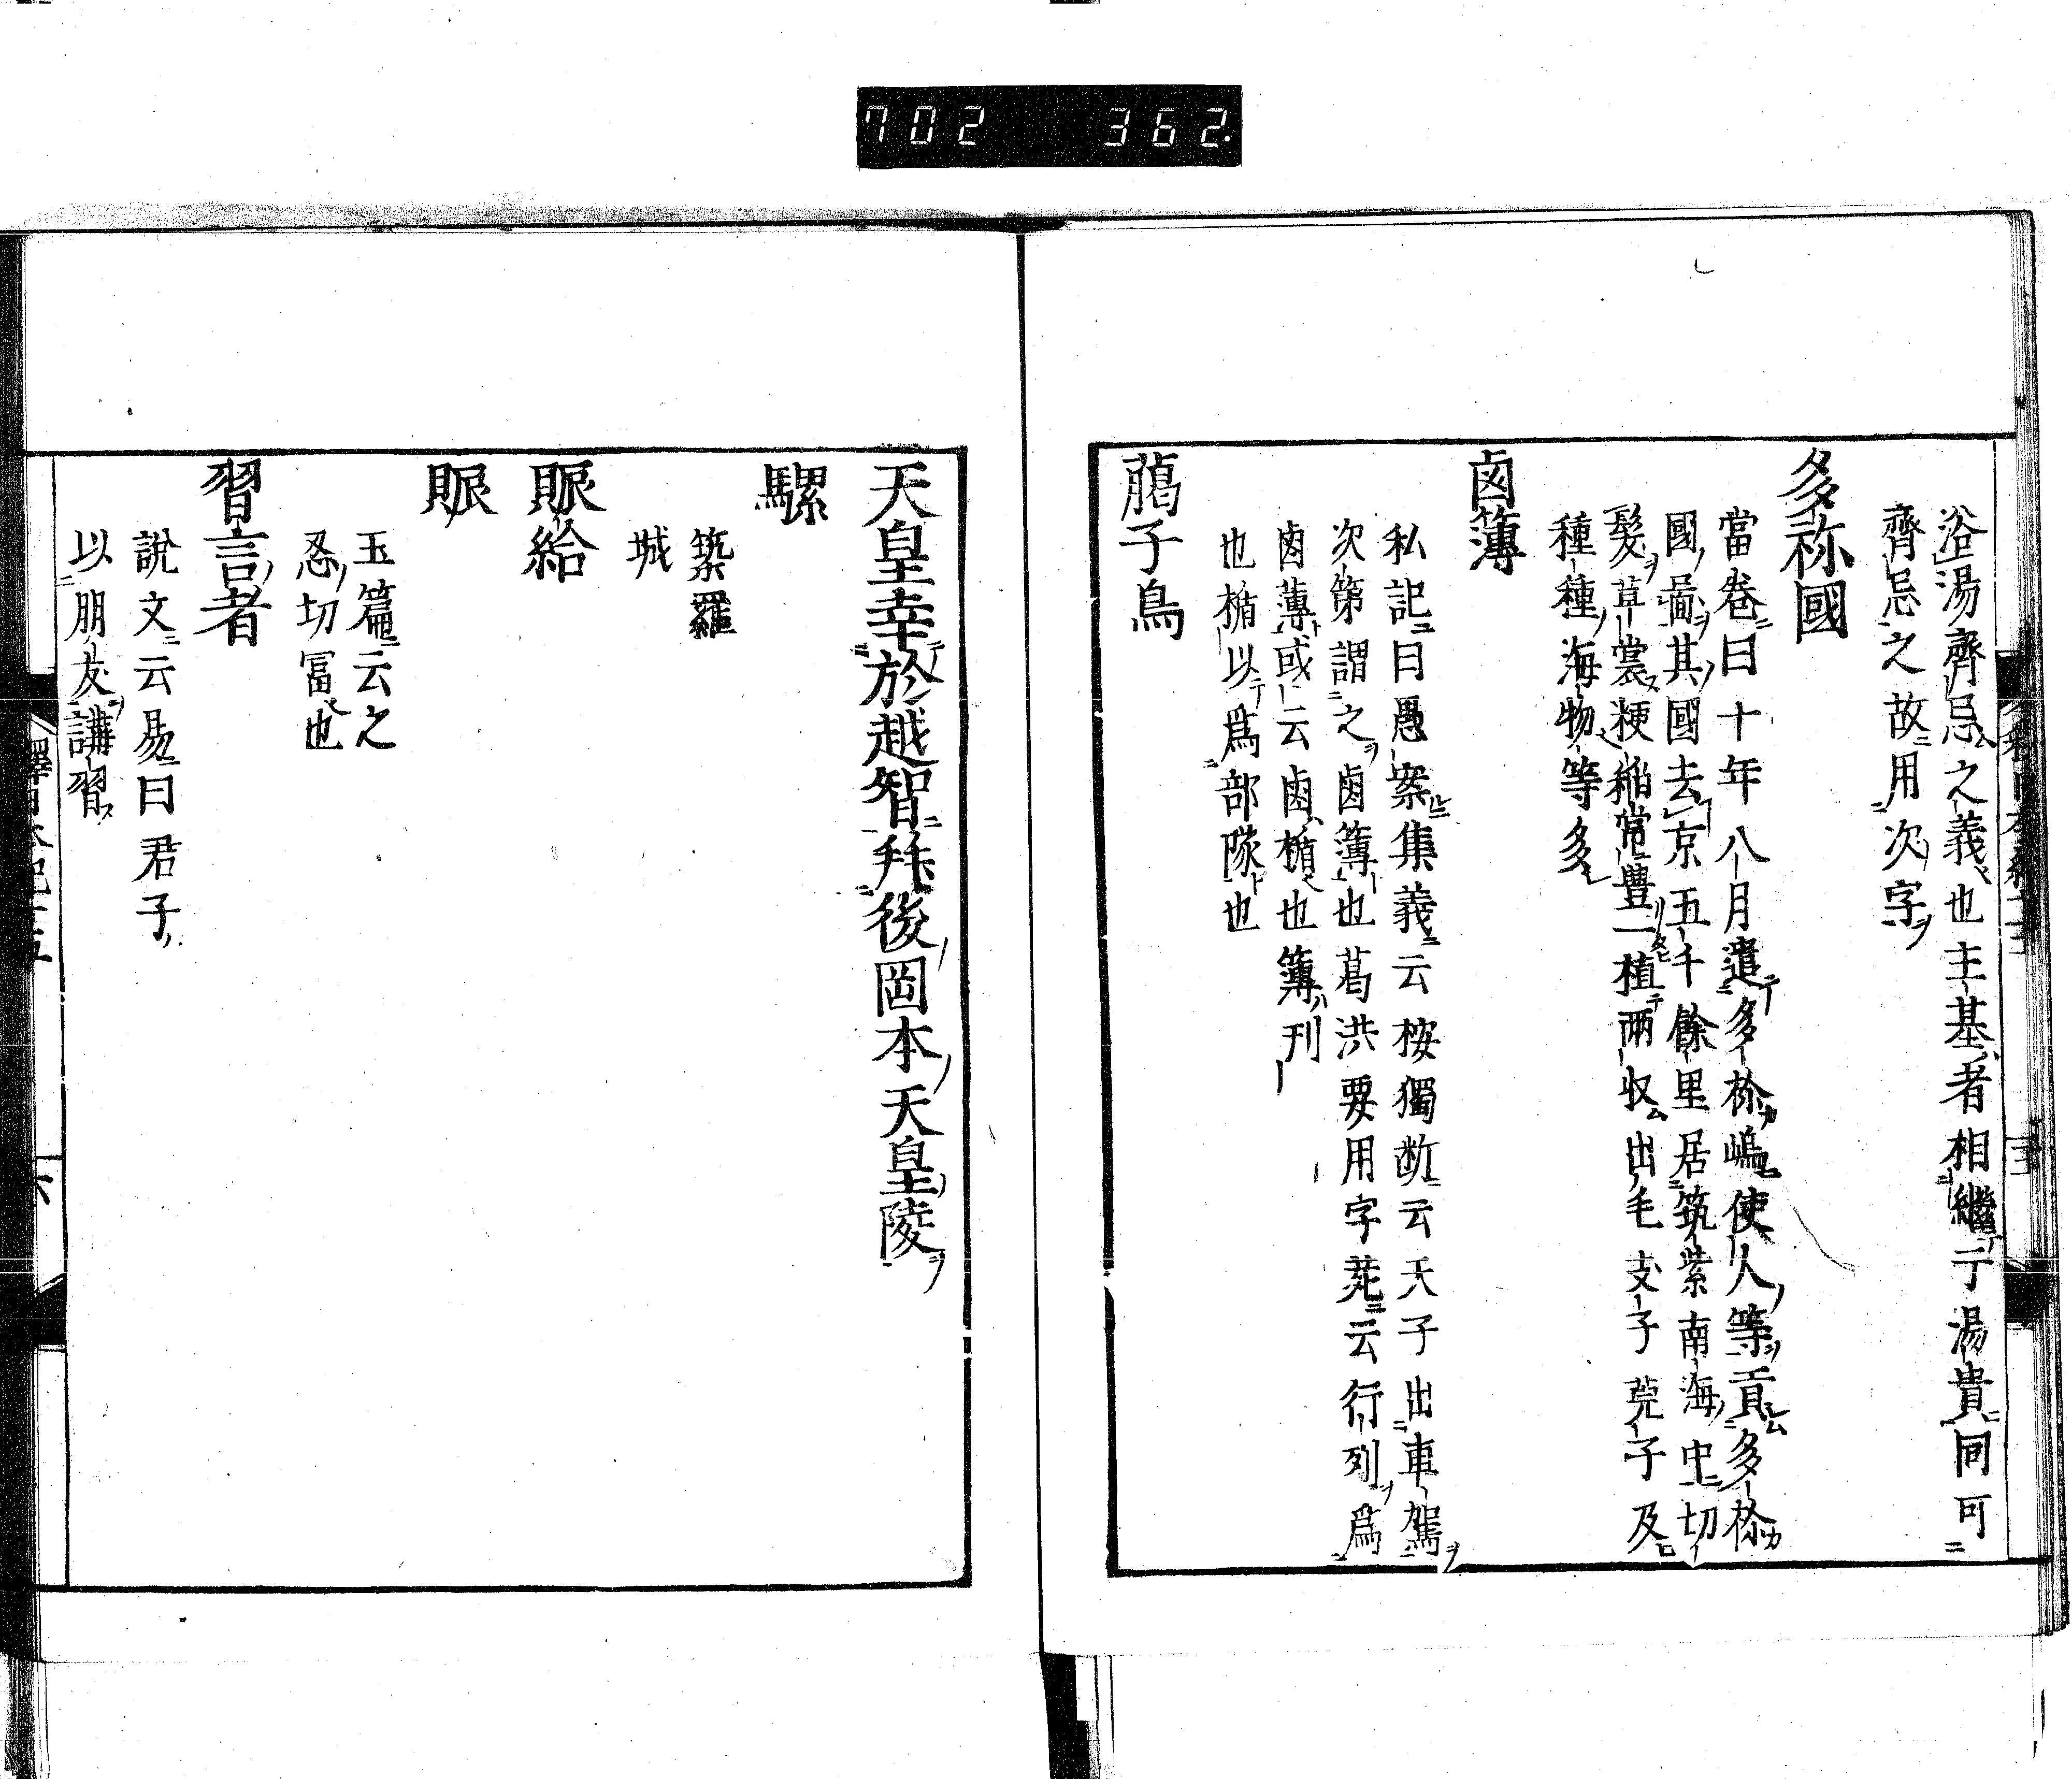 702 362.
浴湯齊忌之義也主基者相繼亍湯貴同可
齊忌之故用次字
多祢國
當卷曰十年八月遣多祢嶋使人等貢多祢
國啚其國去京五千餘里居筑紫南海中切
髮草裳粳稲常豊一植兩収出毛支子莞子及
種種海物等多
鹵簿
私記曰愚案集義云桉獨断云天子出車駕
次第謂之鹵簿也葛洪要用字菀云行列爲
鹵薄或云鹵楯也簿刋
也楯以爲部隊也
鴈子鳥
天皇幸於越智拜後岡本天皇陵
騾
築羅
城
賑給
賑
玉篇云之
忍切冨也
習言者
說文云易曰君子
以朋友講習